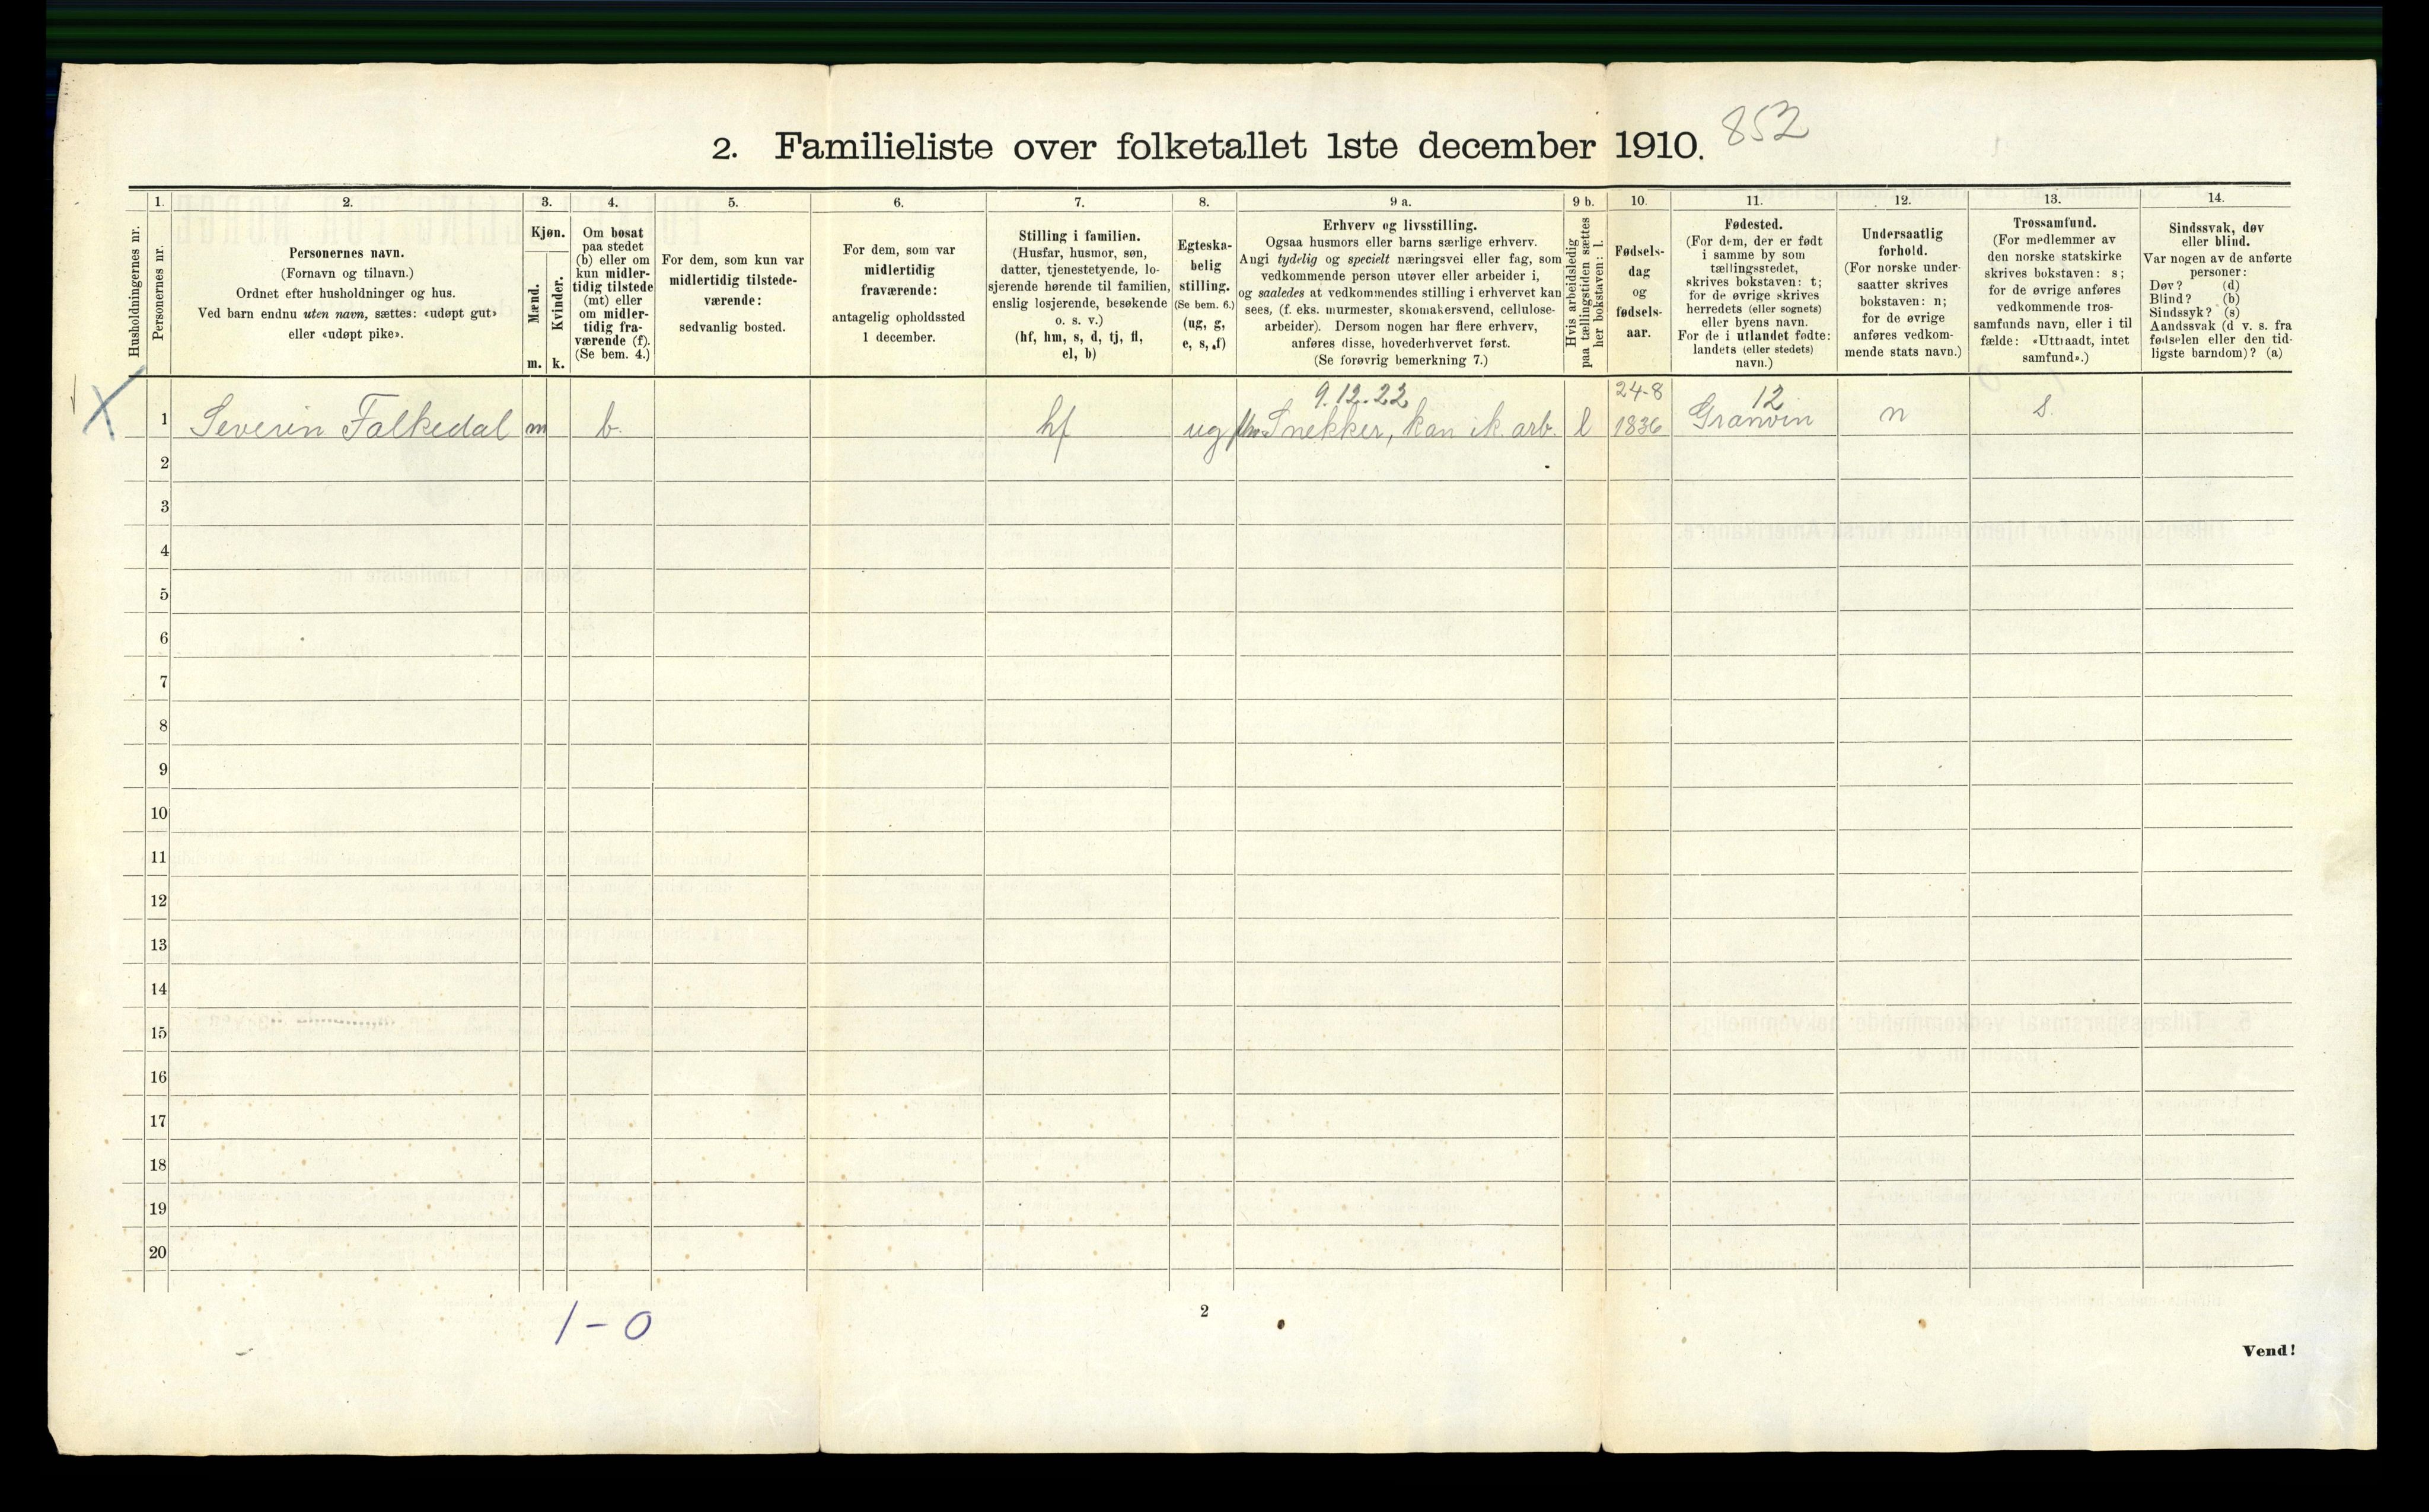 2. Familieliste over folketallet 1ste december 1910. 852
Husholdningernes nr.
1.
Personernes nr.
2.
Personernes navn.
(Fornavn og tilnavn.)
Ordnet efter husholdninger og hus.
Ved barn endnu uten navn, sættes: «udøpt gut»
eller «udøpt pike».
3.
Kjøn.
Mænd.
m.
Kvinder.
k.
4.
Om bosat
paa stedet
(b) eller om
kun midler-
tidig tilstede
(mt) eller
om midler-
tidig fra-
værende (f).
(Se bem. 4.)
5.
For dem, som kun var
midlertidig tilstede-
værende:
sedvanlig bosted.
6.
For dem, som var
midlertidig
fraværende:
antagelig opholdssted
1 december.
7.
Stilling i familien.
(Husfar, husmor, søn,
datter, tjenestetyende, lo-
sjerende hørende til familien,
enslig losjerende, besøkende
o. s. v.)
(hf, hm, s, d, tj, fl,
el, b)
8.
Egteska-
belig
stilling.
(Se bem. 6.)
(ug, g,
e, s, f)
9 a.
Erhverv og livsstilling.
Ogsaa husmors eller barns særlige erhverv.
Angi tydelig og specielt næringsvei eller fag, som
vedkommende person utøver eller arbeider i,
og saaledes at vedkommendes stilling i erhvervet kan
sees, (f. eks. murmester, skomakersvend, cellulose-
arbeider). Dersom nogen har flere erhverv,
anføres disse, hovederhvervet først.
(Se forøvrig bemerkning 7.)
9 b.
Hvis arbeidsledig
paa tællingstiden sættes
her bokstaven: l.
10.
Fødsels-
dag
og
fødsels-
aar.
11.
Fødested.
(For dem, der er født
i samme by som
tællingsstedet,
skrives bokstaven: t;
for de øvrige skrives
herredets (eller sognets)
eller byens navn.
For de i utlandet fødte:
landets (eller stedets)
navn.)
12.
Undersaatlig
forhold.
(For norske under-
saatter skrives
bokstaven: n;
for de øvrige
anføres vedkom-
mende stats navn.)
13.
Trossamfund.
(For medlemmer av
den norske statskirke
skrives bokstaven: s;
for de øvrige anføres
vedkommende tros-
samfunds navn, eller i til
fælde: «Uttraadt, intet
samfund».)
14.
Sindssvak, døv
eller blind.
Var nogen av de anførte
personer:
Døv? (d)
Blind? (b)
Sindssyk? (s)
Aandssvak (d v. s. fra
fødselen eller den tid-
ligste barndom)? (a)
9.12.22 24-8 12
X 1 Severin Falkedal m b. hf ug Snekker, kan ik. arb. l 1836 Granvin n s.
2
3
4
5
6
7
8
9
10
11
12
13
14
15
16
17
18
19
20
1-0
2
Vend!